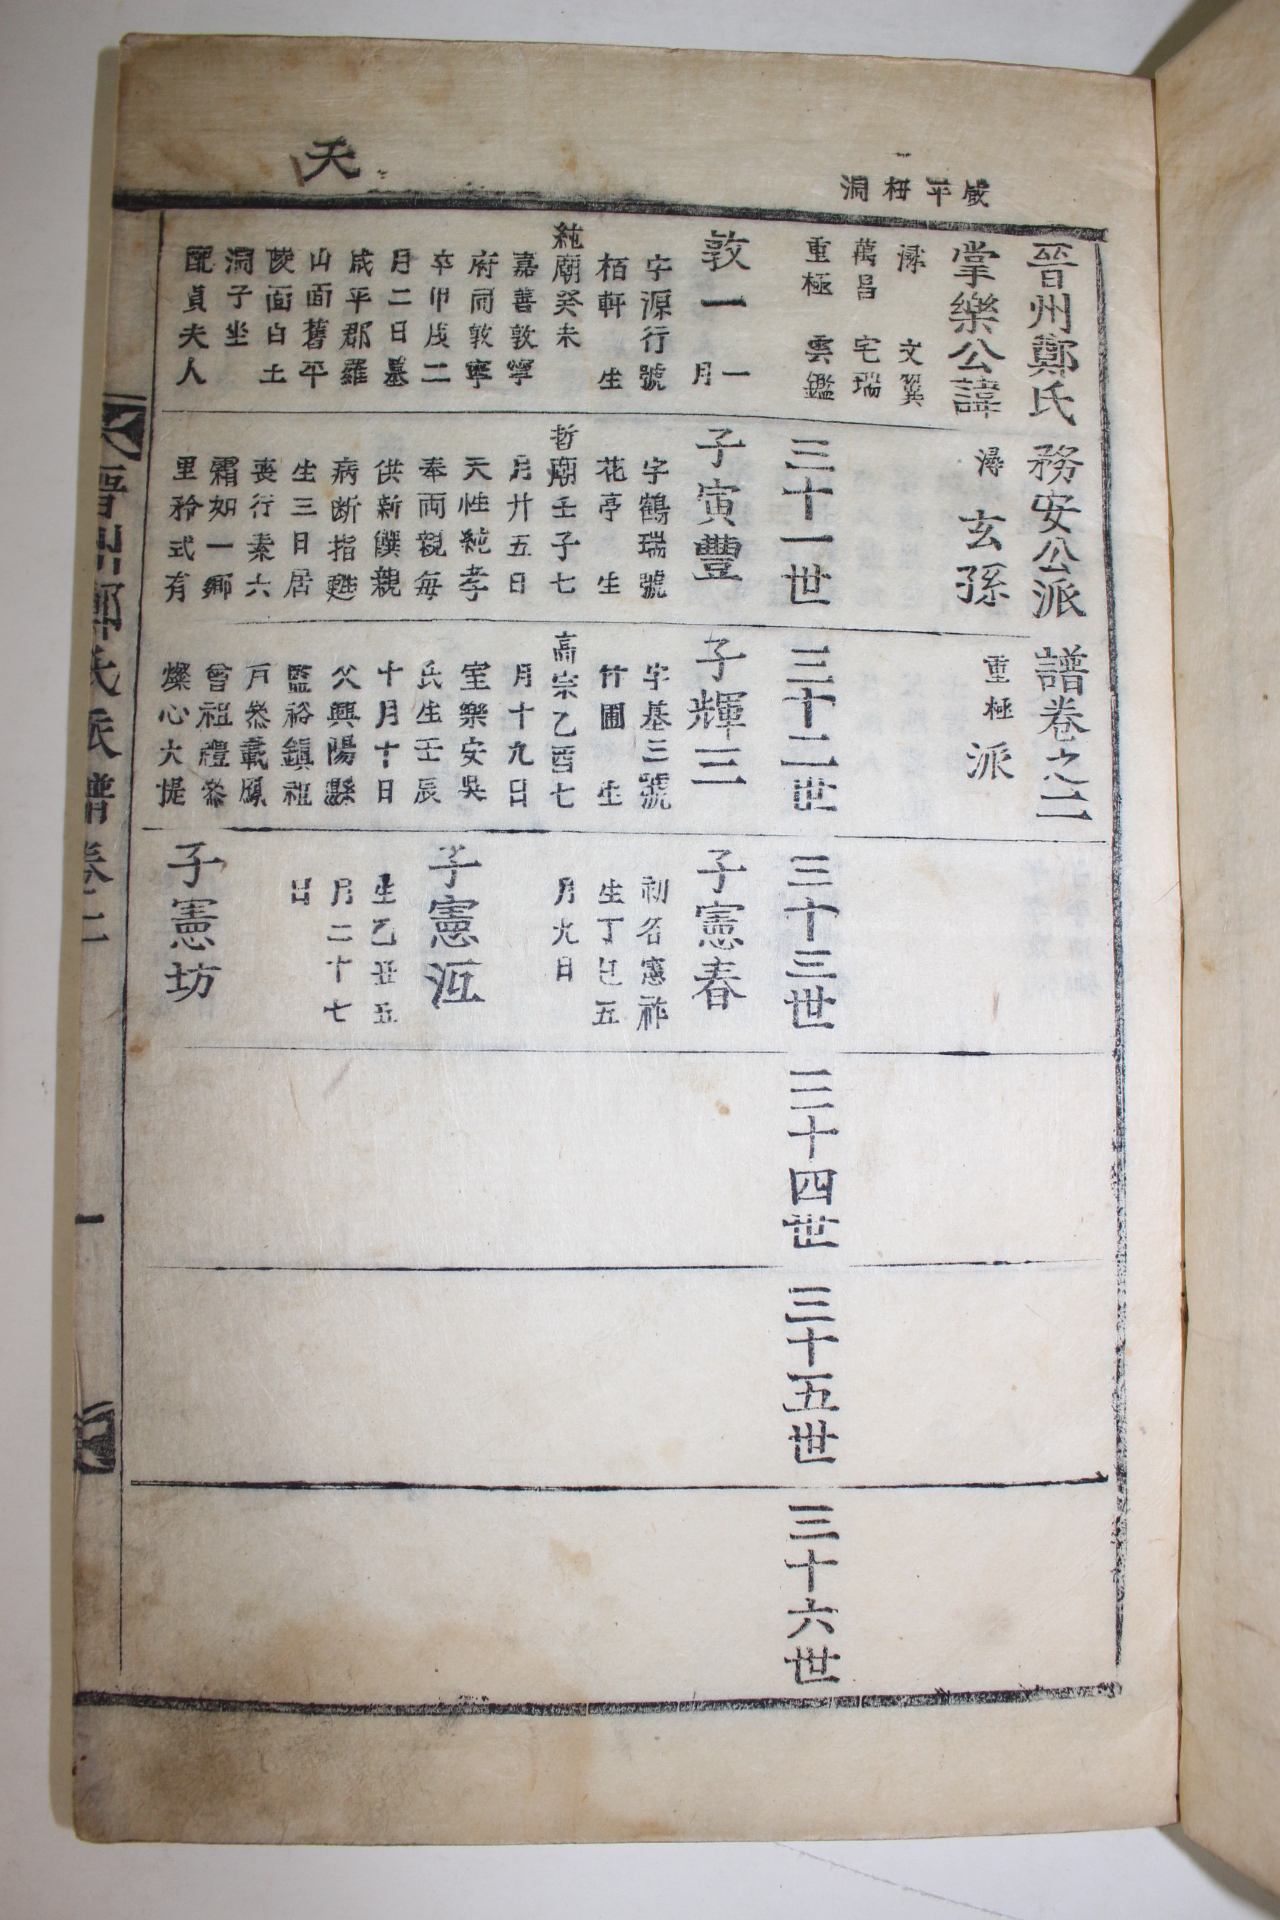 天
咸平梅洞
晉州鄭氏務安公派譜卷之二
掌樂公諱潯玄孫重極派
濂 文翼
萬昌 宅瑞
重極 雲鑑
三十一世
三十二世
三十三世
三十四世
三十五世
三十六世
敦一 一月
字源行號
栢軒 生
純廟癸未
嘉善敦寧
府同敦寧
卒甲戌二
月二日墓
咸平郡羅
山面舊平
陵面白土
洞子坐
配貞夫人
子寅豐
字鶴瑞號
花亭 生
哲廟壬子七
月廿五日
天性純孝
奉兩親每
供新饌親
病斷指甦
生三日居
喪行素六
霜如一鄉
里矜式有
子輝三
字基三號
竹圃 生
高宗乙酉七
月十九日
室樂安吳
氏生壬辰
十月十日
父興陽縣
監裕鎮祖
戶叅載鳳
曾祖禮叅
燦心大提
子憲春
初名憲祚
生丁巳五
月九日
子憲沍
生乙丑五
月二十七
日
子憲坊
晉州鄭氏派譜卷二
一